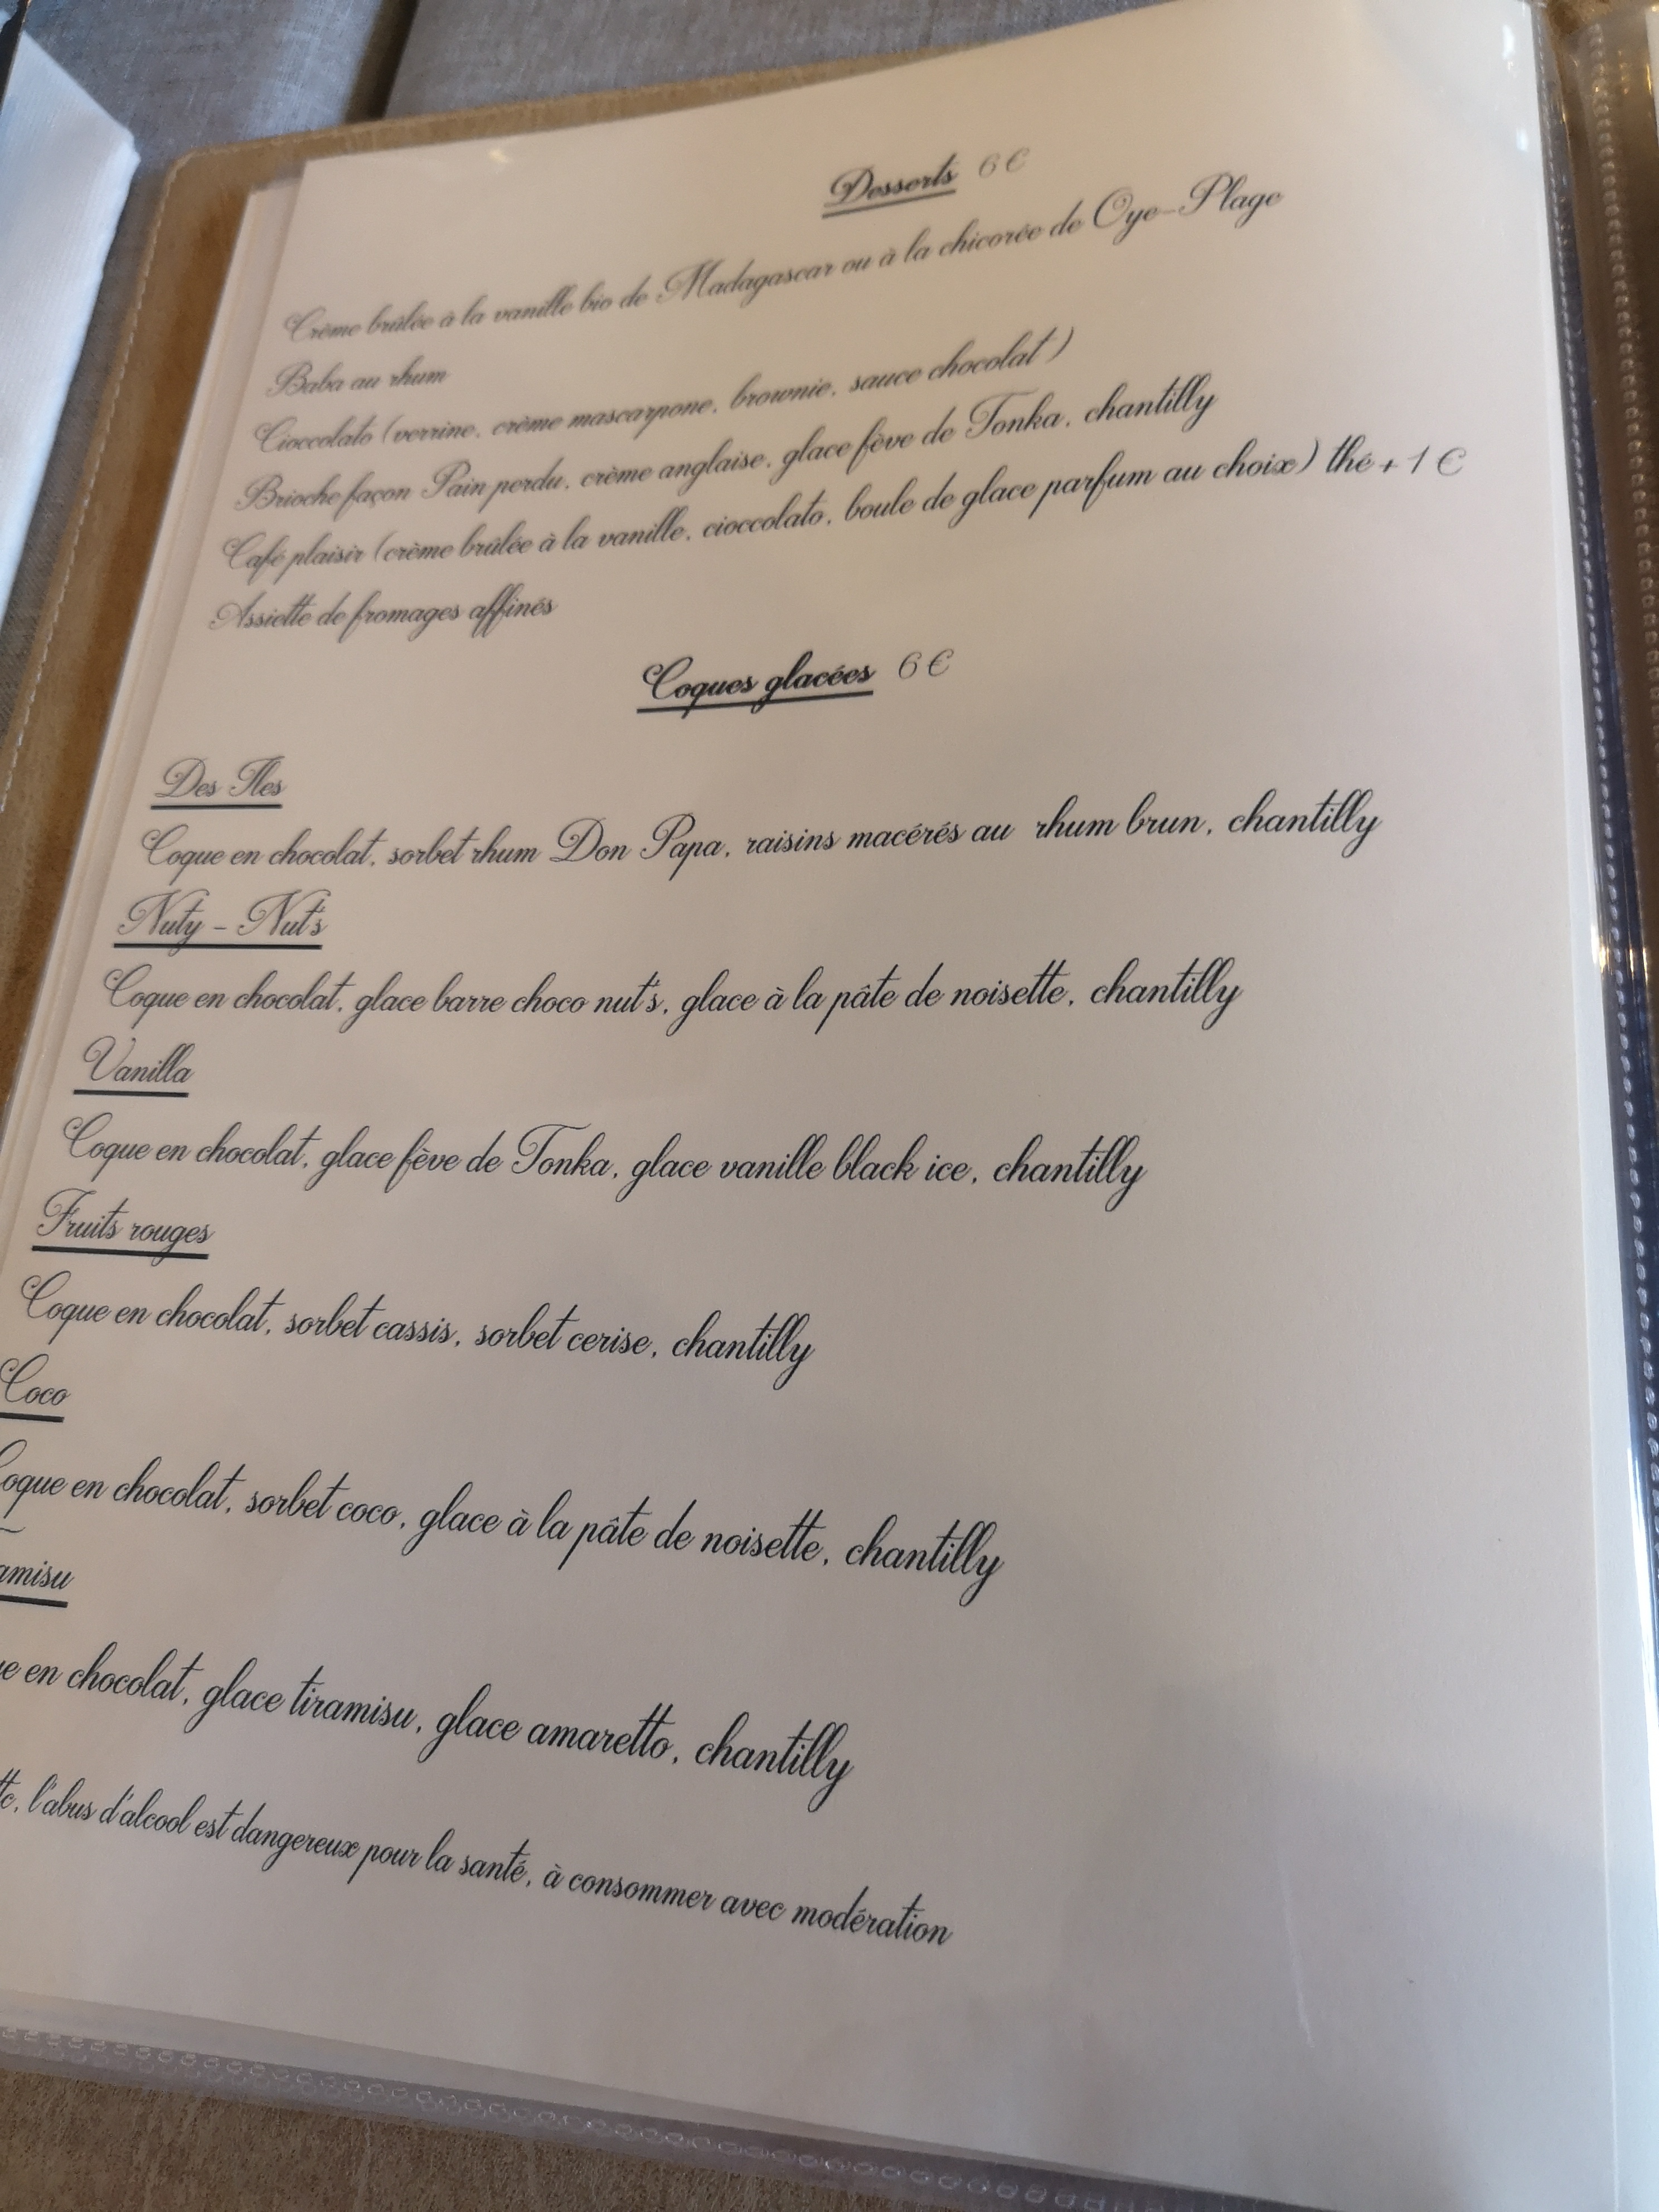 Desserts 6 €
Crème brûlée à la vanille bio de Madagascar ou à la chicorée de Oye-Plage
Baba au rhum
Cioccolato (verrine, crème mascarpone, brownie, sauce chocolat)
Brioche façon Pain perdu, crème anglaise, glace fève de Tonka, chantilly
Café plaisir (crème brûlée à la vanille, cioccolato, boule de glace parfum au choix) thé + 1 €
Assiette de fromages affinés
Coques glacées 6 €
Des Iles
Coque en chocolat, sorbet rhum Don Papa, raisins macérés au rhum brun, chantilly
Nuty - Nut's
Coque en chocolat, glace barre choco nut's, glace à la pâte de noisette, chantilly
Vanilla
Coque en chocolat, glace fève de Tonka, glace vanille black ice, chantilly
Fruits rouges
Coque en chocolat, sorbet cassis, sorbet cerise, chantilly
Coco
oque en chocolat, sorbet coco, glace à la pâte de noisette, chantilly
amisu
e en chocolat, glace tiramisu, glace amaretto, chantilly
l'abus d'alcool est dangereux pour la santé, à consommer avec modération